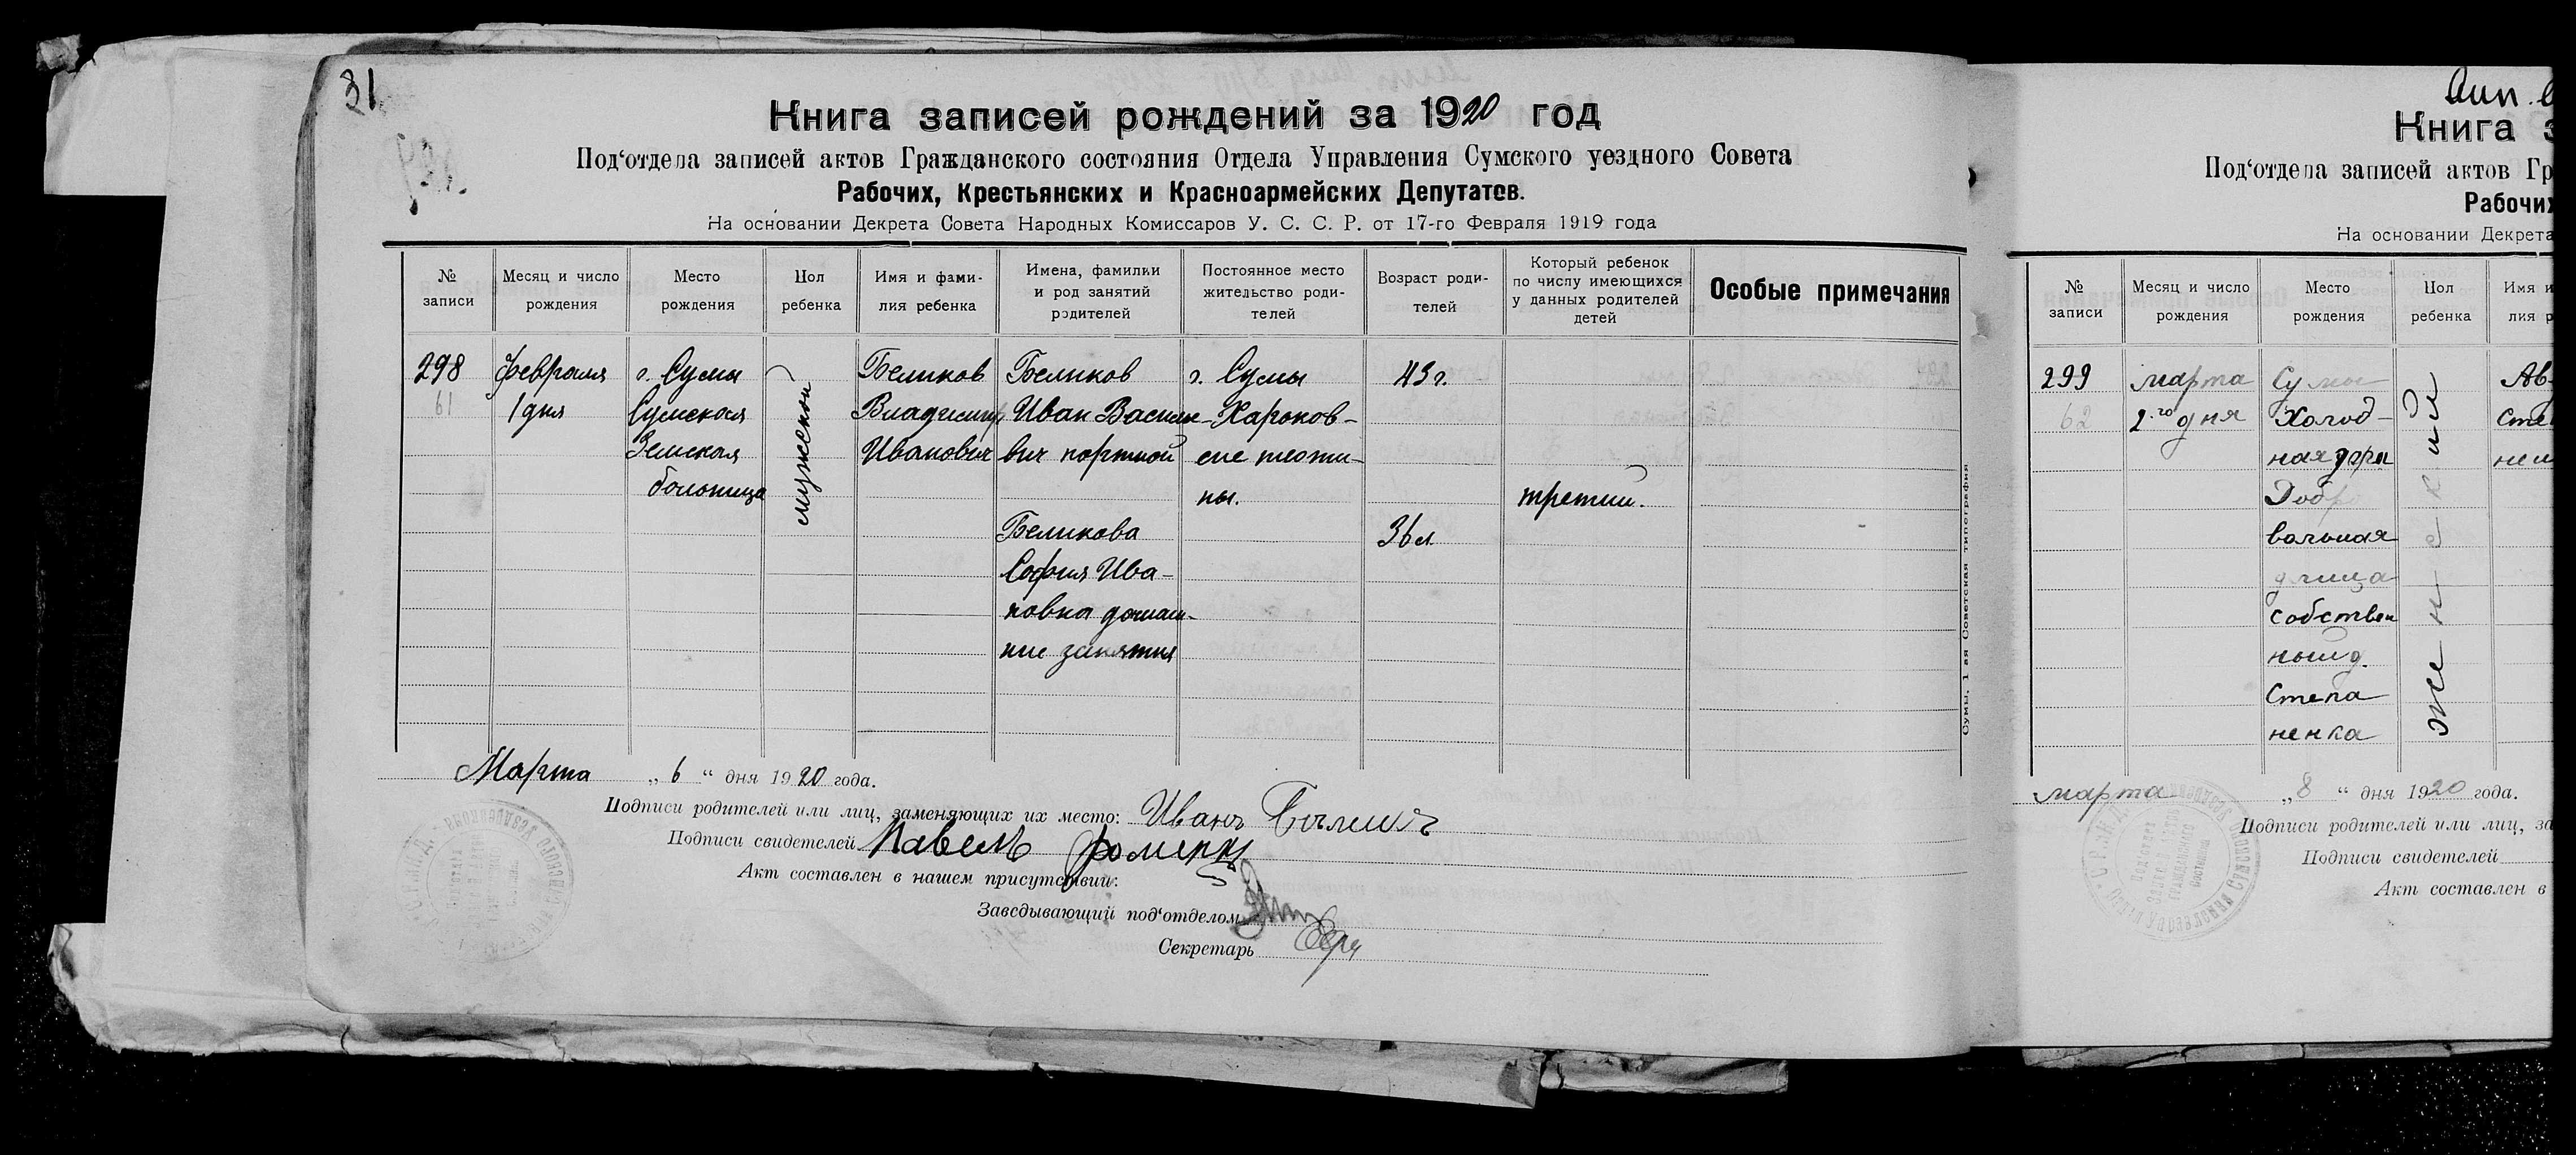 31
Книга записей рождений за 1920 год
Под'отдела записей актов Гражданского состояния Отдела Управления Сумского уездного Совета
Рабочих, Крестьянских и Красноармейских Депутатов.
На основании Декрета Совета Народных Комиссаров У. С. С. Р. от 17-го Февраля 1919 года
№ записи
Месяц и число рождения
Место рождения
Пол ребенка
Имя и фамилия ребенка
Имена, фамилии и род занятий родителей
Постоянное место жительство родителей
Возраст родителей
Который ребенок по числу имеющихся у данных родителей детей
Особые примечания
298
61
февраля
1 дня
г. Сумы
Сумская
Земская
больница
мужской
Беликов
Владимир
Иванович
Беликов
Иван Василь-
вич портной
Беликова
София Ива-
новна домаш-
ние занятия
г. Сумы
Харьков-
43 г.
36 л.
третий.
Марта „ 6 “ дня 1920 года.
Подписи родителей или лиц, заменяющих их место: Иванъ
Подписи свидетелей Павел
Акт составлен в нашем присутствии:
Заведывающий под'отделом
Секретарь
Сумы, 1-ая Советская типография
Книга з
Под'отдела записей актов Гр
Рабочих
На основании Декрета
№ записи
Месяц и число рождения
Место рождения
Пол ребенка
Имя и
лия р
299
62
марта
2го дня
Сумы
Холод-
ная гора
Добр
вольная
улица
собствен
ный д.
Степа
ненка
женский
Ав
Сте
марта „ 8 “ дня 1920 года.
Подписи родителей или лиц, за
Подписи свидетелей
Акт составлен в